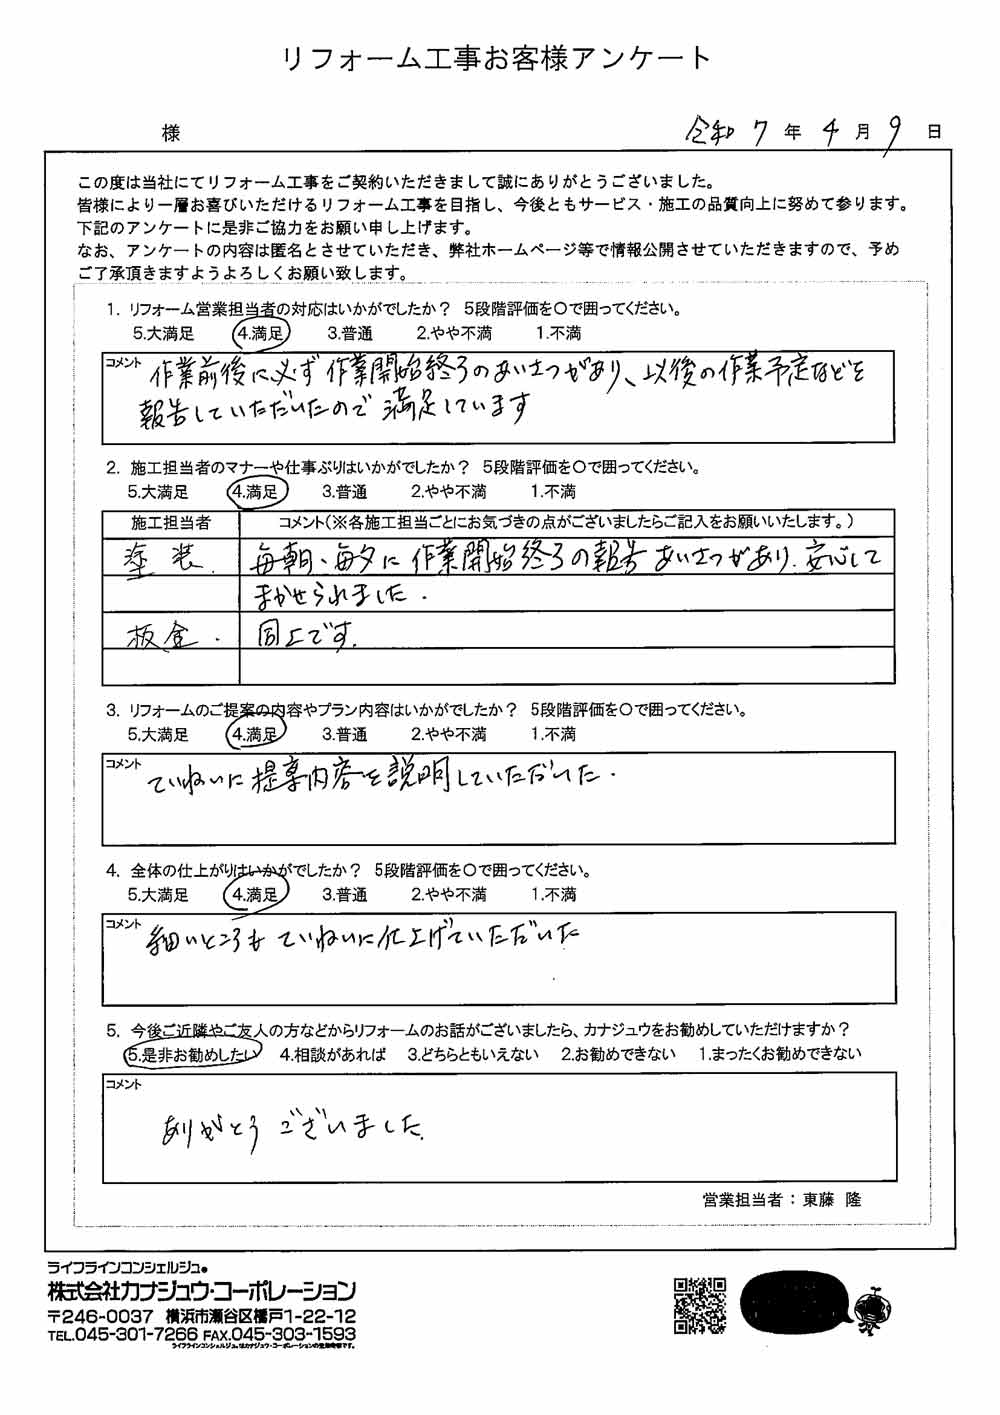 リフォーム工事お客様アンケート
様 令和 7 年 4 月 9 日
この度は当社にてリフォーム工事をご契約いただきまして誠にありがとうございました。
皆様により一層お喜びいただけるリフォーム工事を目指し、今後ともサービス・施工の品質向上に努めて参ります。
下記のアンケートに是非ご協力をお願い申し上げます。
なお、アンケートの内容は匿名とさせていただき、弊社ホームページ等で情報公開させていただきますので、予め
ご了承頂きますようよろしくお願い致します。
1. リフォーム営業担当者の対応はいかがでしたか? 5段階評価を〇で囲ってください。
5.大満足 4.満足 3.普通 2.やや不満 1.不満
コメント
作業前後に必ず作業開始終了のあいさつがあり、以後の作業予定などを
報告していただいたので満足しています
2. 施工担当者のマナーや仕事ぶりはいかがでしたか? 5段階評価を〇で囲ってください。
5.大満足 4.満足 3.普通 2.やや不満 1.不満
施工担当者 コメント(※各施工担当ごとにお気づきの点がございましたらご記入をお願いいたします。)
塗装. 毎朝、毎夕に作業開始終了の報告あいさつがあり、安心して
まかせられました.
板金. 同上です.
3. リフォームのご提案の内容やプラン内容はいかがでしたか? 5段階評価を〇で囲ってください。
5.大満足 4.満足 3.普通 2.やや不満 1.不満
コメント
ていねいに提案内容を説明していただいた.
4. 全体の仕上がりはいかがでしたか? 5段階評価を〇で囲ってください。
5.大満足 4.満足 3.普通 2.やや不満 1.不満
コメント
細いところもていねいに仕上げていただいた
5. 今後ご近隣やご友人の方などからリフォームのお話がございましたら、カナジュウをお勧めしていただけますか?
5.是非お勧めしたい 4.相談があれば 3.どちらともいえない 2.お勧めできない 1.まったくお勧めできない
コメント
ありがとうございました.
営業担当者：東藤 隆
ライフラインコンシェルジュ。
株式会社カナジュウ・コーポレーション
〒246-0037 横浜市瀬谷区橋戸1-22-12
TEL.045-301-7266 FAX.045-303-1593
ライフラインコンシェルジュ。はカナジュウ・コーポレーションの登録商標です。